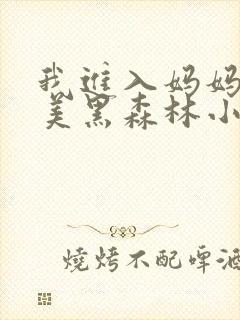 我进入妈妈
美黑森林小
烧烤不配啤酒